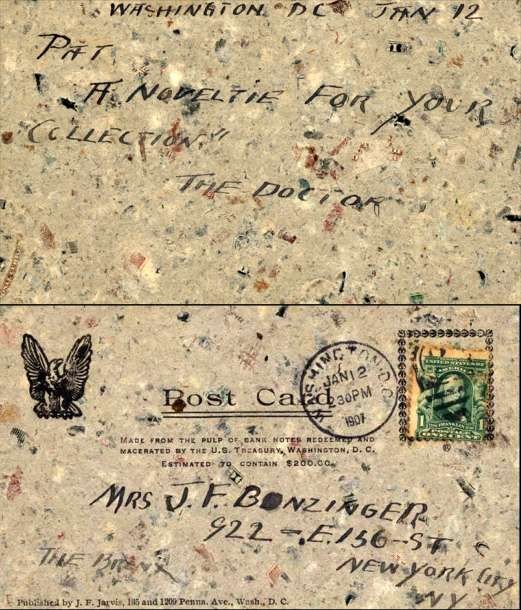 WASHINGTON DC JAN 12
PAT
A NOVELTIE FOR YOUR
COLLECTION"
THE DOCTOR
WASHINGTON, D.C.
JAN 12
30PM
1907
Post Card
UNITED STATES
1 1
MADE FROM THE PULP OF BANK NOTES REDEEMED AND
MACERATED BY THE U.S. TREASURY, WASHINGTON, D. C.
ESTIMATED TO CONTAIN $200.00.
MRS J. F. BONZINGER
922 - E. 136 - ST
THE BRONX
NEW YORK CITY
NY
Published by J. F. Jarvis, 135 and 1209 Penna. Ave., Wash., D. C.